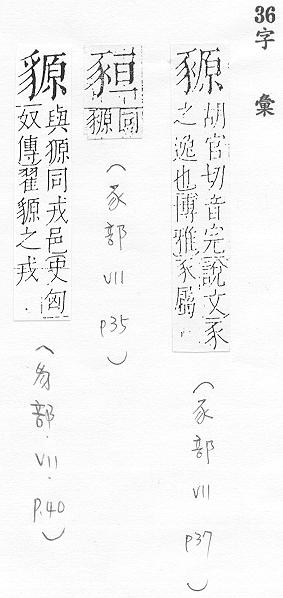 36字彙
豲
胡官切音完說文豕
之逸也博雅豕屬
(豕部 VII P37)
同
豲
(豕部 VII P35)
與獂同戎邑史匈
奴傳翟之戎
(豸部.VII.P.40)